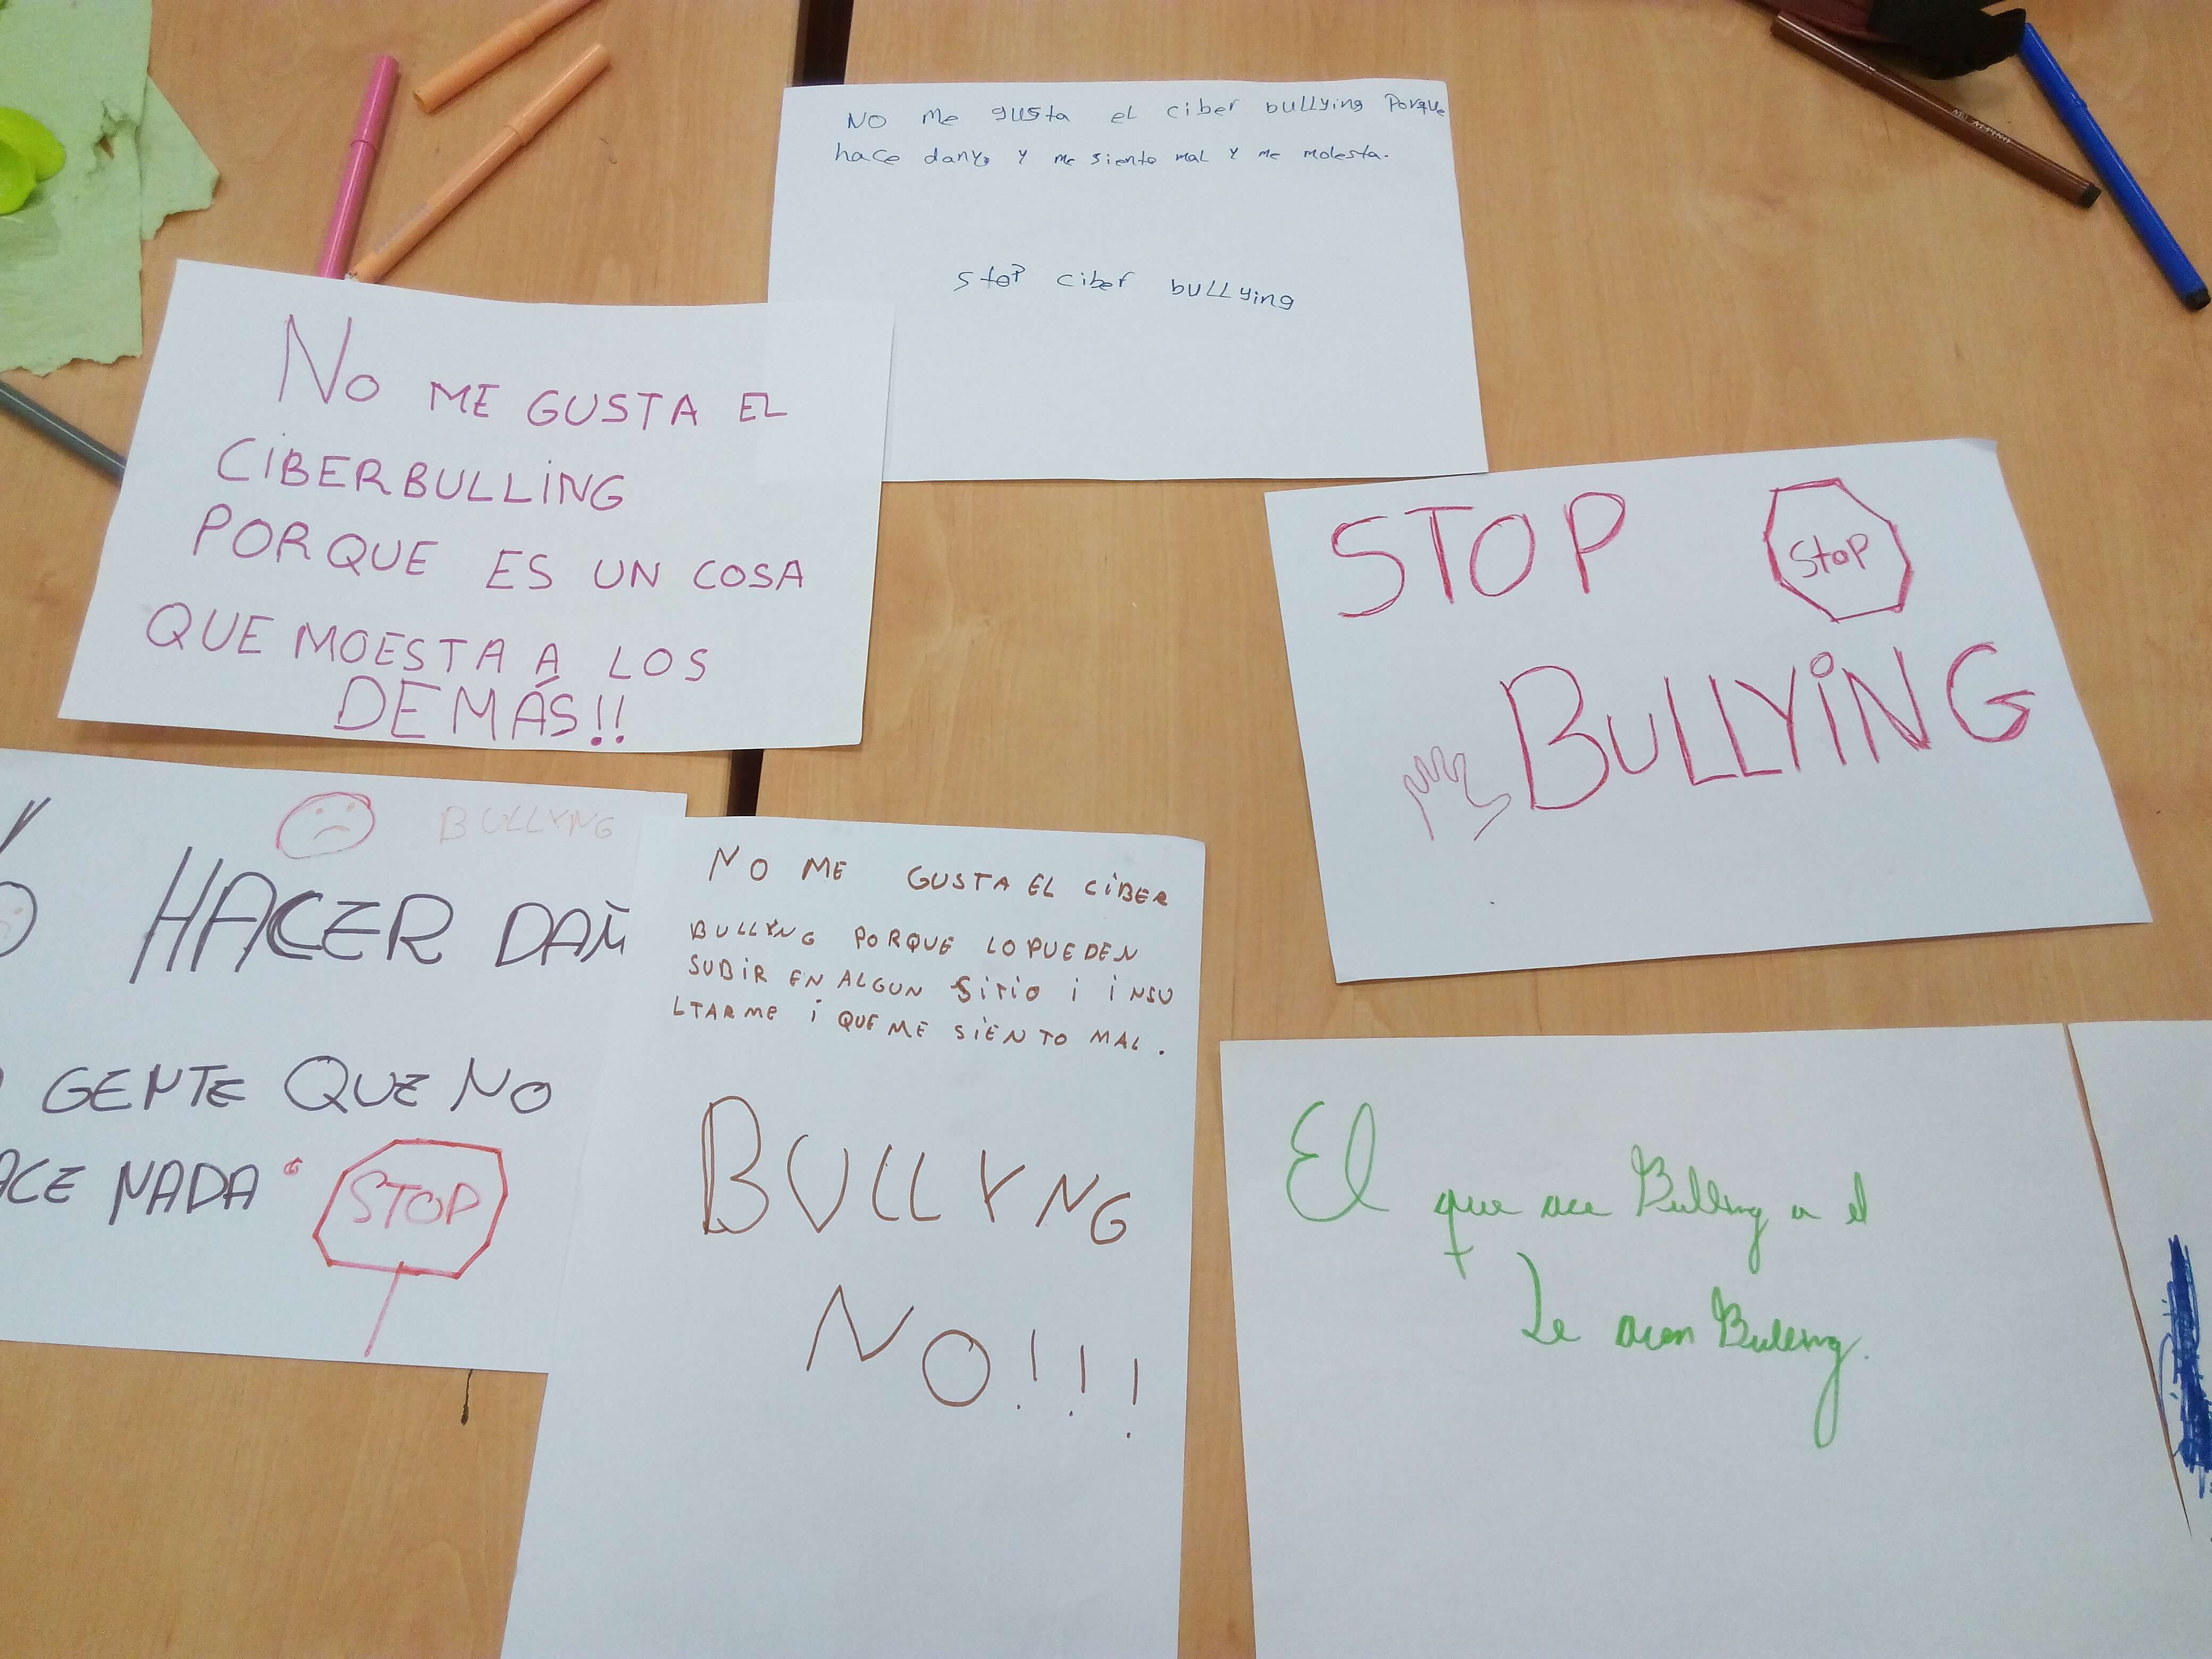 No me gusta el ciber bullying Porque
hace danyo y me siento mal y me molesta.
stop ciber bullying
No ME GUSTA EL
CiBERBULLiNG
PORQUE ES UN COSA
QUE MOESTA A LOS
DEMÁS!!
STOP
StoP
BULLYiNG
BULLYNG
HACER DAÑ
GENTE QUE NO
ACE NADA
STOP
NO ME GUSTA EL CiBER
BULLYNG PORQUE LO PUEDEN
SUBiR EN ALGUN SiTiO i iNSU
LTARME i QUE ME SiENTO MAL.
BULLYNG
NO!!!
El que ace Bulling a el
Le acen Buleing.